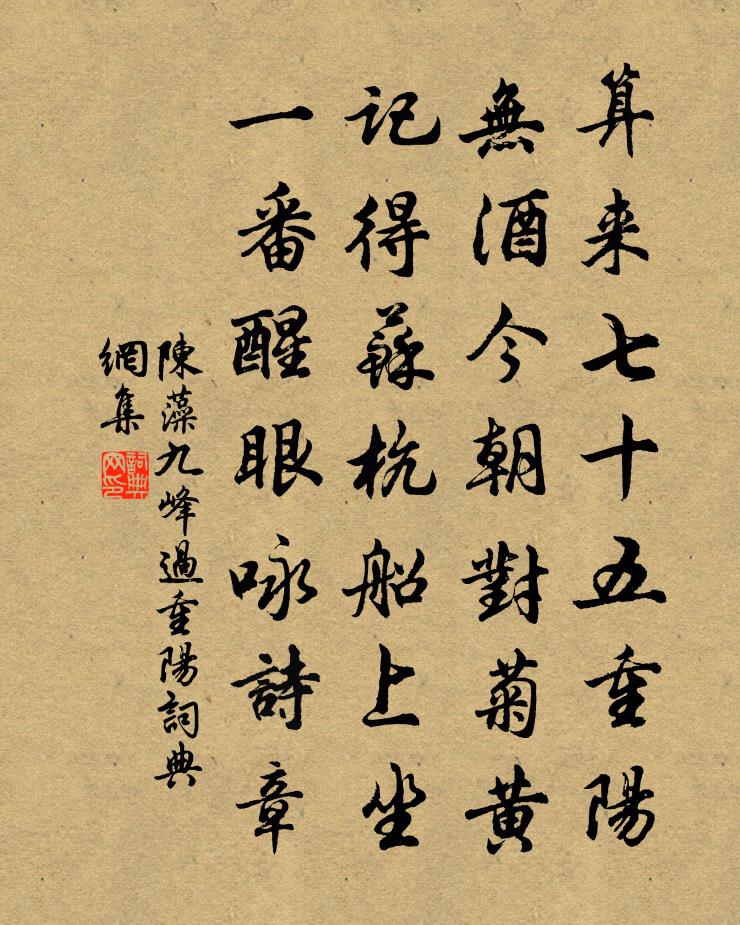 算来七十五重陽
無酒今朝對菊黄
記得蘇杭船上坐
一番醒眼咏詩章
陳藻九峰過重陽詞典
網集
詞典网印